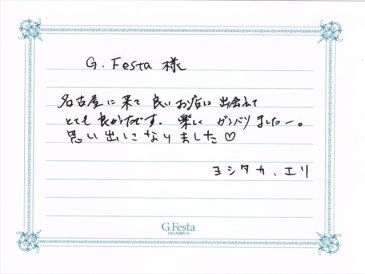 G.Festa 様
名古屋に来て良いお店に出会えて
とても良かったです。楽しくガンバリましたー。
思い出になりました♡
ヨシタカ、エリ
G.Festa